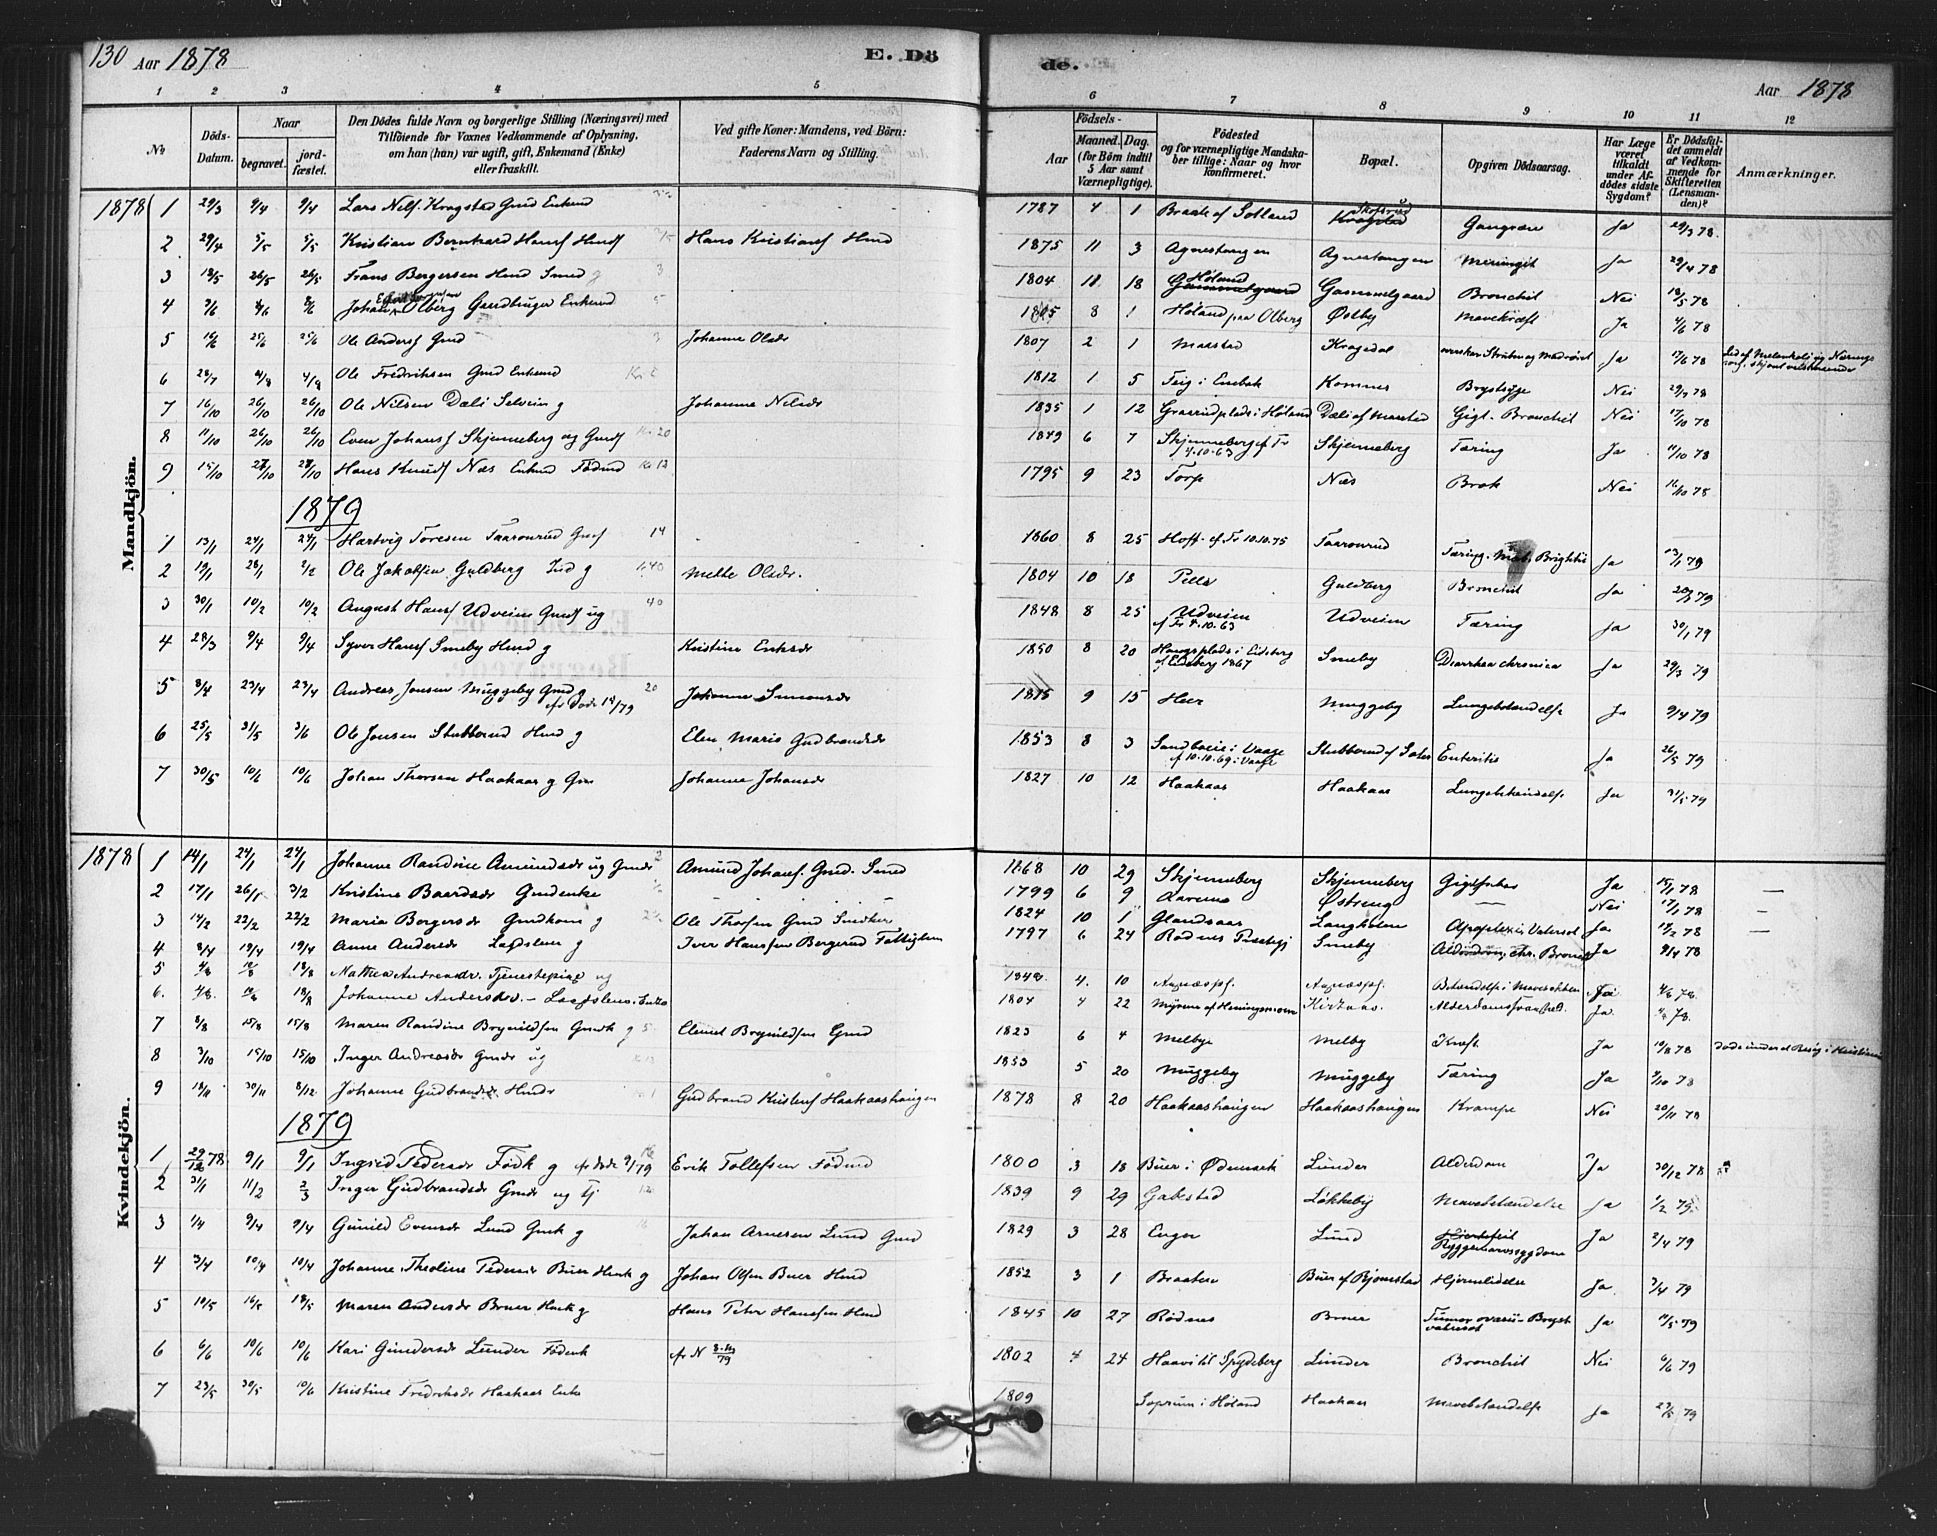 130 Aar 1878 E. Dö
de. Aar 1878
1 2 3 4 5 6 7 8 9 10 11 12
No
Döds-Datum.
Naar
begravet.
jord-fæstet.
Den Dödes fulde Navn og borgerlige Stilling (Næringsvei) med
Tilföiende for Voxnes Vedkommende af Oplysning,
om han (hun) var ugift, gift, Enkemand (Enke)
eller fraskilt.
Ved gifte Koner: Mandens, ved Börn:
Faderens Navn og Stilling.
Födsels-
Aar
Maaned. Dag.
(for Börn indtil
5 Aar samt
Værnepligtige).
Födested
og for værnepligtige Mandska-
ber tillige: Naar og hvor
konfirmeret.
Bopæl.
Opgiven Dödsaarsag.
Har Læge
været
tilkaldt
under Af-
dödes sidste
Sygdom?
Er Dödsfal-
det anmeldt
af Vedkom-
mende for
Skifteretten
(Lensman-
den)?
Anmærkninger.
Mandkjön.
1878 1 29/3 9/4 9/4 Lars Nils. Kragstad Gmd Enkmd 1787 4 1 Braate af Sotland Kragstad Gangræn Ja 29/3 78
2 29/4 5/5 5/5 Kristian Bernhard Hans. Hmds Hans Kristians. Hmd 1875 11 3 Agnestangen Agnestangen Meningit Ja 29/4 78
3 18/5 26/5 26/5 Frans Bergersen Hmd Smed g 1804 11 18 Høland Gammelgaard Bronchit Nei 18/5 78
4 3/6 8/6 8/6 Johan Olberg Gaardbruger Enkemd 1805 8 1 Høland paa Olberg Østby Mavekræft Ja 4/6 78
5 16/6 25/6 25/6 Ole Anders. Gmd Johanne Olsdr 1807 2 1 Maastad Kragedal Ja 17/6 78
6 28/7 4/8 4/8 Ole Fredriksen Gmd Enkemd 1812 1 5 Teig i Enebak Kommer Brystsyge Nei 29/7 78
7 16/10 26/10 26/10 Ole Nilsen Dæli Selveier g Johanne Nilsdr 1835 1 12 Dæli af Maastad Gigt. Bronchit Nei 17/10 78
8 11/10 26/10 26/10 Even Johans. Skjenneberg ug Gmds 1849 6 7 Skjenneberg cf Tr 4.10.63 Skjenneberg Tæring Ja 11/10 78
9 15/10 27/10 27/10 Hans Knuds. Næs Enkmd Födmd 1795 9 23 Torp Næs Brok Nei 16/10 78
1879
1 13/1 24/1 24/1 Hartvig Toresen Taaronrud Gmds 14 1860 8 25 Hoff cf Tr 10.10.75 Taaronrud Tæring. Mb. Brightii Ja 13/1 79
2 19/1 28/1 2/2 Ole Jakobsen Guldberg Ind g Mette Olsdr. 1804 10 18 Pells Guldberg Bronchit Ja 20/1 79
3 30/1 10/2 10/2 August Hans. Udveien Gmds ug 40 1848 8 25 Udveien cf Tr 4.10.63 Udveien Tæring Ja 30/1 79
4 28/3 9/4 9/4 Syver Hans. Smeby Hmd g Kristine Eriksdr 1850 8 20 Haugsplads i Eidsberg cf Eidsberg 1867 Smeby Diarrhea chronica Ja 29/3 79
5 8/4 23/4 23/4 Andreas Jonsen Muggeby Gmd g 20 Johanne Simonsdr 1815 9 15 Heer Muggeby Lungebetændelse Ja 9/4 79
6 25/5 31/5 3/6 Ole Jonsen Stubberud Hmd g Elen Marie Gudbrandsdr 1853 8 3 Sandboeie i Vaage cf 10.10.69 i Vaage Stubberud af Enteritis Ja 26/5 79
7 30/5 10/6 10/6 Johan Thorsen Haakaas g Gm Johanne Johansdr 1827 10 12 Haakaas Haakaas Lungebetændelse Ja 31/5 79
Kvindekjön.
1878 1 14/1 24/1 24/1 Johanne Randine Amundsdr ug Gmdr Amund Johans. Gmd. Smed 1868 10 29 Skjenneberg Skjenneberg Gigtfeber Ja 15/1 78 —
2 17/1 26/1 3/2 Kristine Baardsdr Gmdenke 1799 6 9 Aarnes Østeng — Nei 17/1 78 —
3 14/2 22/2 22/2 Maria Bergersdr Gmdkone g Ole Thosen Gmd Snedker 1824 10 1 Glandsaas Langholen Apoplexi, Vatersot Ja 15/2 78 —
4 8/4 19/4 19/4 Anne Andersdr Lægdslem g Iver Hanssen Bergerud Fattiglem 1797 6 24 Rødnes Smeby Alderdom, chr. Bronchit Ja 9/4 78
5 4/8 18/8 18/8 Mathea Andreasdr. Tjenestepige ug 4. 10 Ja 4/8 78.
6. 4/8. 18/8 Johanne Andersdr. – Lægdslem. Enke 1804 4 22 Kirkaas Alderdomssvaghed. Ja. 78.
7 8/8 15/8 15/8 Maren Randine Brynildsen Gmdk g 5 Clemet Brynildsen Gmd 1823 6 4 Melbye Melby Kræft Ja 10/8 78 døde under et Besøg i Kristiania
8 3/10 15/10 15/10 Inger Andreasdr Gmdr ug 1853 5 20 Muggeby Muggeby Tæring Ja 4/10 78
9 18/11 30/11 8/12 Johanne Gudbrandsdr Hmdr Gudbrand Kristens. Haakaashaugen 1878 8 20 Haakaashaugen Haakaashaugen Krampe Nei 20/11 78
1879
1 29/12 78 9/1 9/1 Ingrid Pedersdr Födk g Erik Tollefsen Födmd 1800 3 18 Buer i Ødemark Lunder Alderdom Ja 30/12 78
2 31/1 11/2 2/3 Inger Gudbrandsdr Gmdr ug tj 1839 9 29 Gabestad Løkkeby Mavebetændelse Ja 1/2 79
3 1/4 9/4 9/4 Gunild Evensdr Lund Gmk g Johan Arnesen Lund Gmd 1829 3 28 Enger Lund Ryggemarvssygdom Ja 2/4 79
4 3/4 10/4 10/4 Johanne Theoline Pedersdr Buer Hmk g Johan Olsen Buer Hmd 1852 3 1 Braaten Buer af Bjonestad Hjernelidelse Ja 3/4 79
5 10/5 16/5 18/5 Maren Andersdr Bruer Hmk g Hans Peter Hanssen Hmd 1845 10 27 Rödnes Bruer Tumor ovarii – Bryst vatersot Ja 11/5 79
6 6/6 10/6 10/6 Kari Gundersdr Lunder Födenk 1802 4 24 Haavi til Spydeberg Lunder Bronchit Nei 6/6 79
7 23/5 30/5 10/6 Kristine Fredriksdr Haakaas Enke 1809 Soprum i Høland Haakaas Mavebetændelse Ja 23/5 79